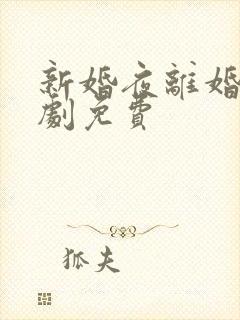 新婚夜離婚
劇免費
狐夫